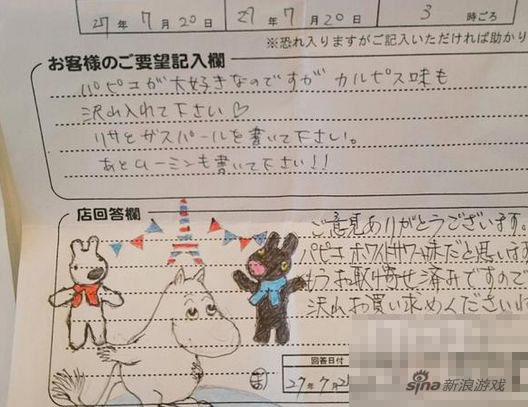 27年 7月 20日 27年 7月 20日 3 時ごろ
※恐れ入りますがご記入いただければ助かり
お客様のご要望記入欄
パピコが大好きなのですが カルピス味も
沢山入れて下さい♡
リサとガスパールを書いて下さい。
あとムーミンも書いて下さい!!
店回答欄
ご意見ありがとうございます。
パピコ ホワイトサワー味だと思います
もうお取り寄せ済みですので
沢山お買い求めください
回答日付
27年 7月
sina 新浪游戏